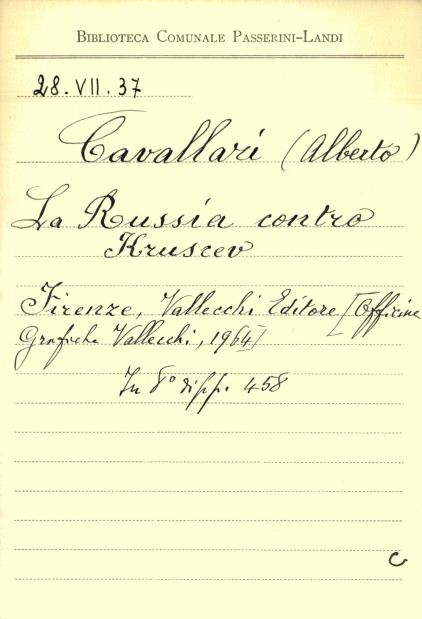 BIBLIOTECA COMUNALE PASSERINI-LANDI
28.VII.37
Cavallari (Alberto)
La Russia contro
Kruscev
Firenze, Vallecchi Editore [Officine
Grafiche Vallecchi, 1964]
In 8° di pp. 458
C